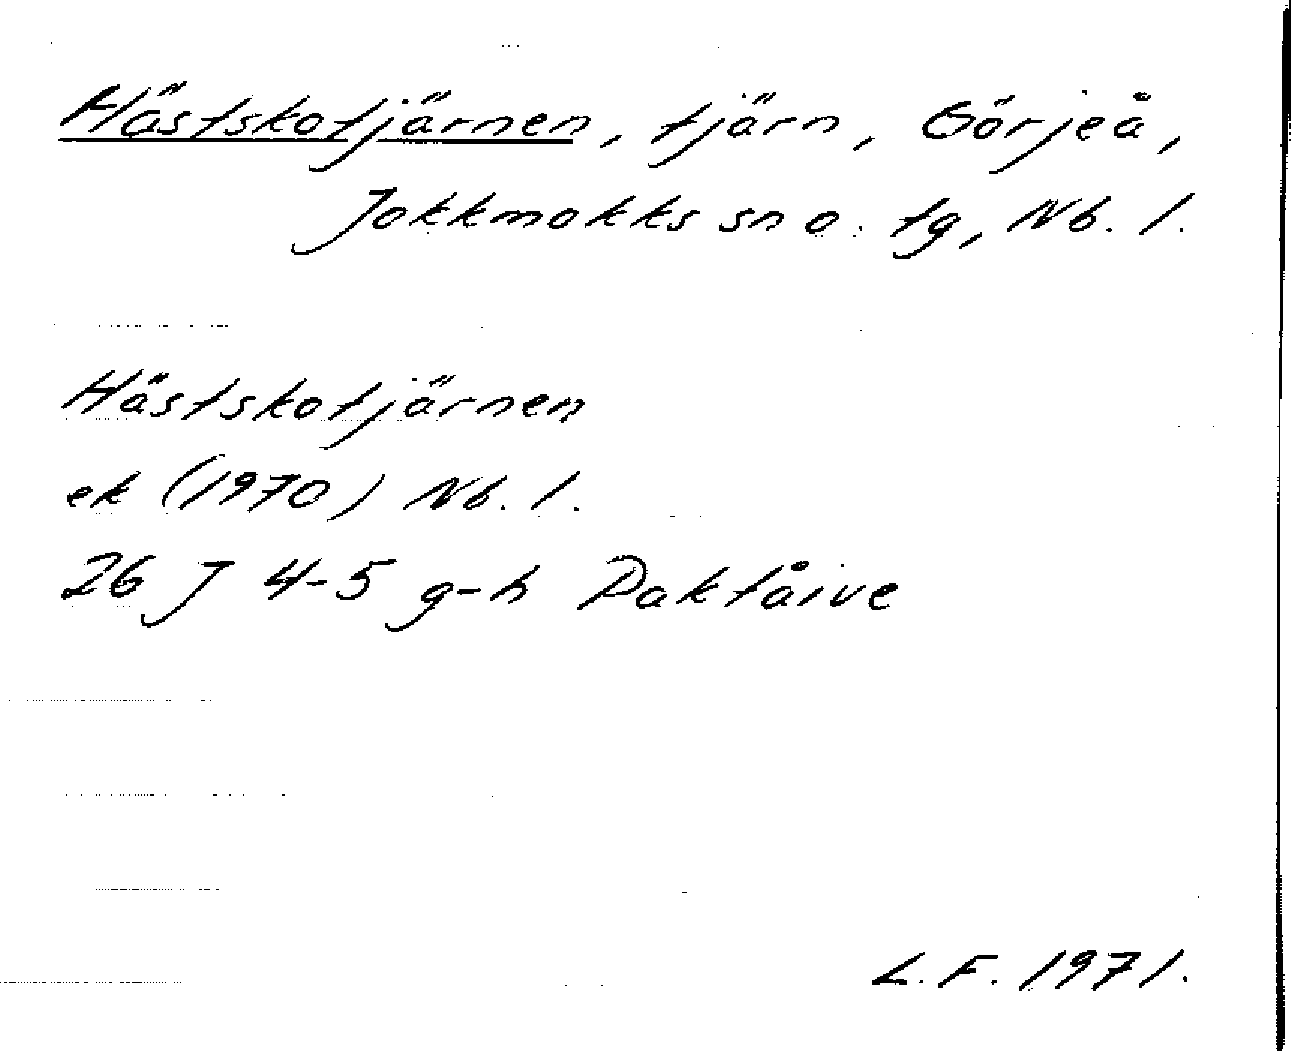 Hästskotjärnen, tjärn, Görjeå,
Jokkmokks sn o. tg, Nb. l.
Hästskotjärnen
ek (1970) Nb. l.
26 J 4-5 g-h Paktåive
L.F. 1971.